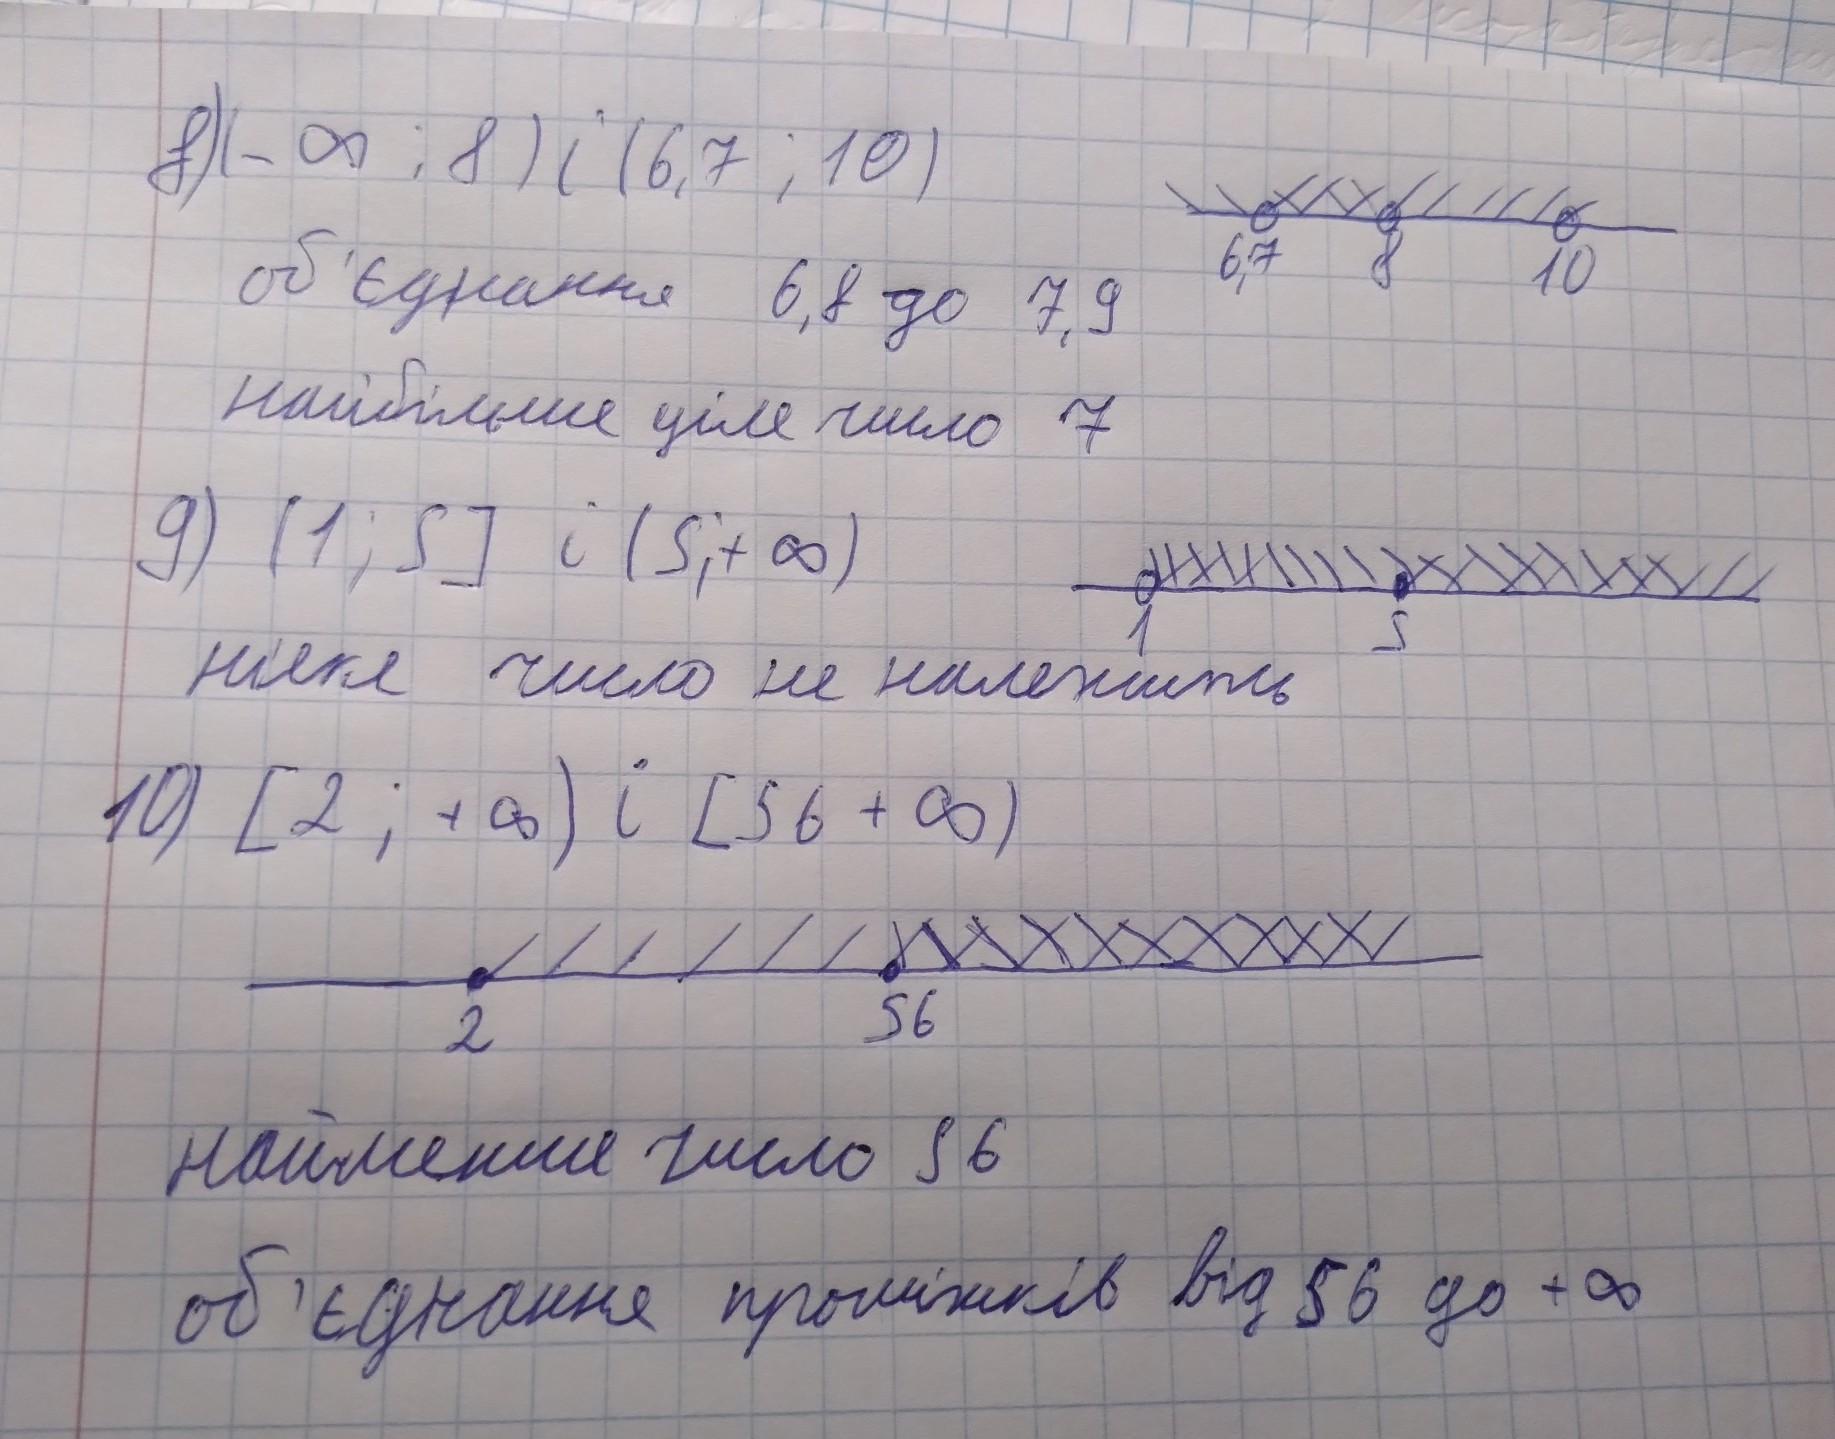 8) (-∞ ; 8) і (6,7 ; 10)
6,7 8 10
об'єднання 6,8 до 7,9
найбільше ціле число 7
9) [1 ; 5] і (5;+∞)
1 5
ніяке число не належить
10) [2 ; +∞) і [56 +∞)
2 56
найменше число 56
об'єднання проміжків від 56 до +∞